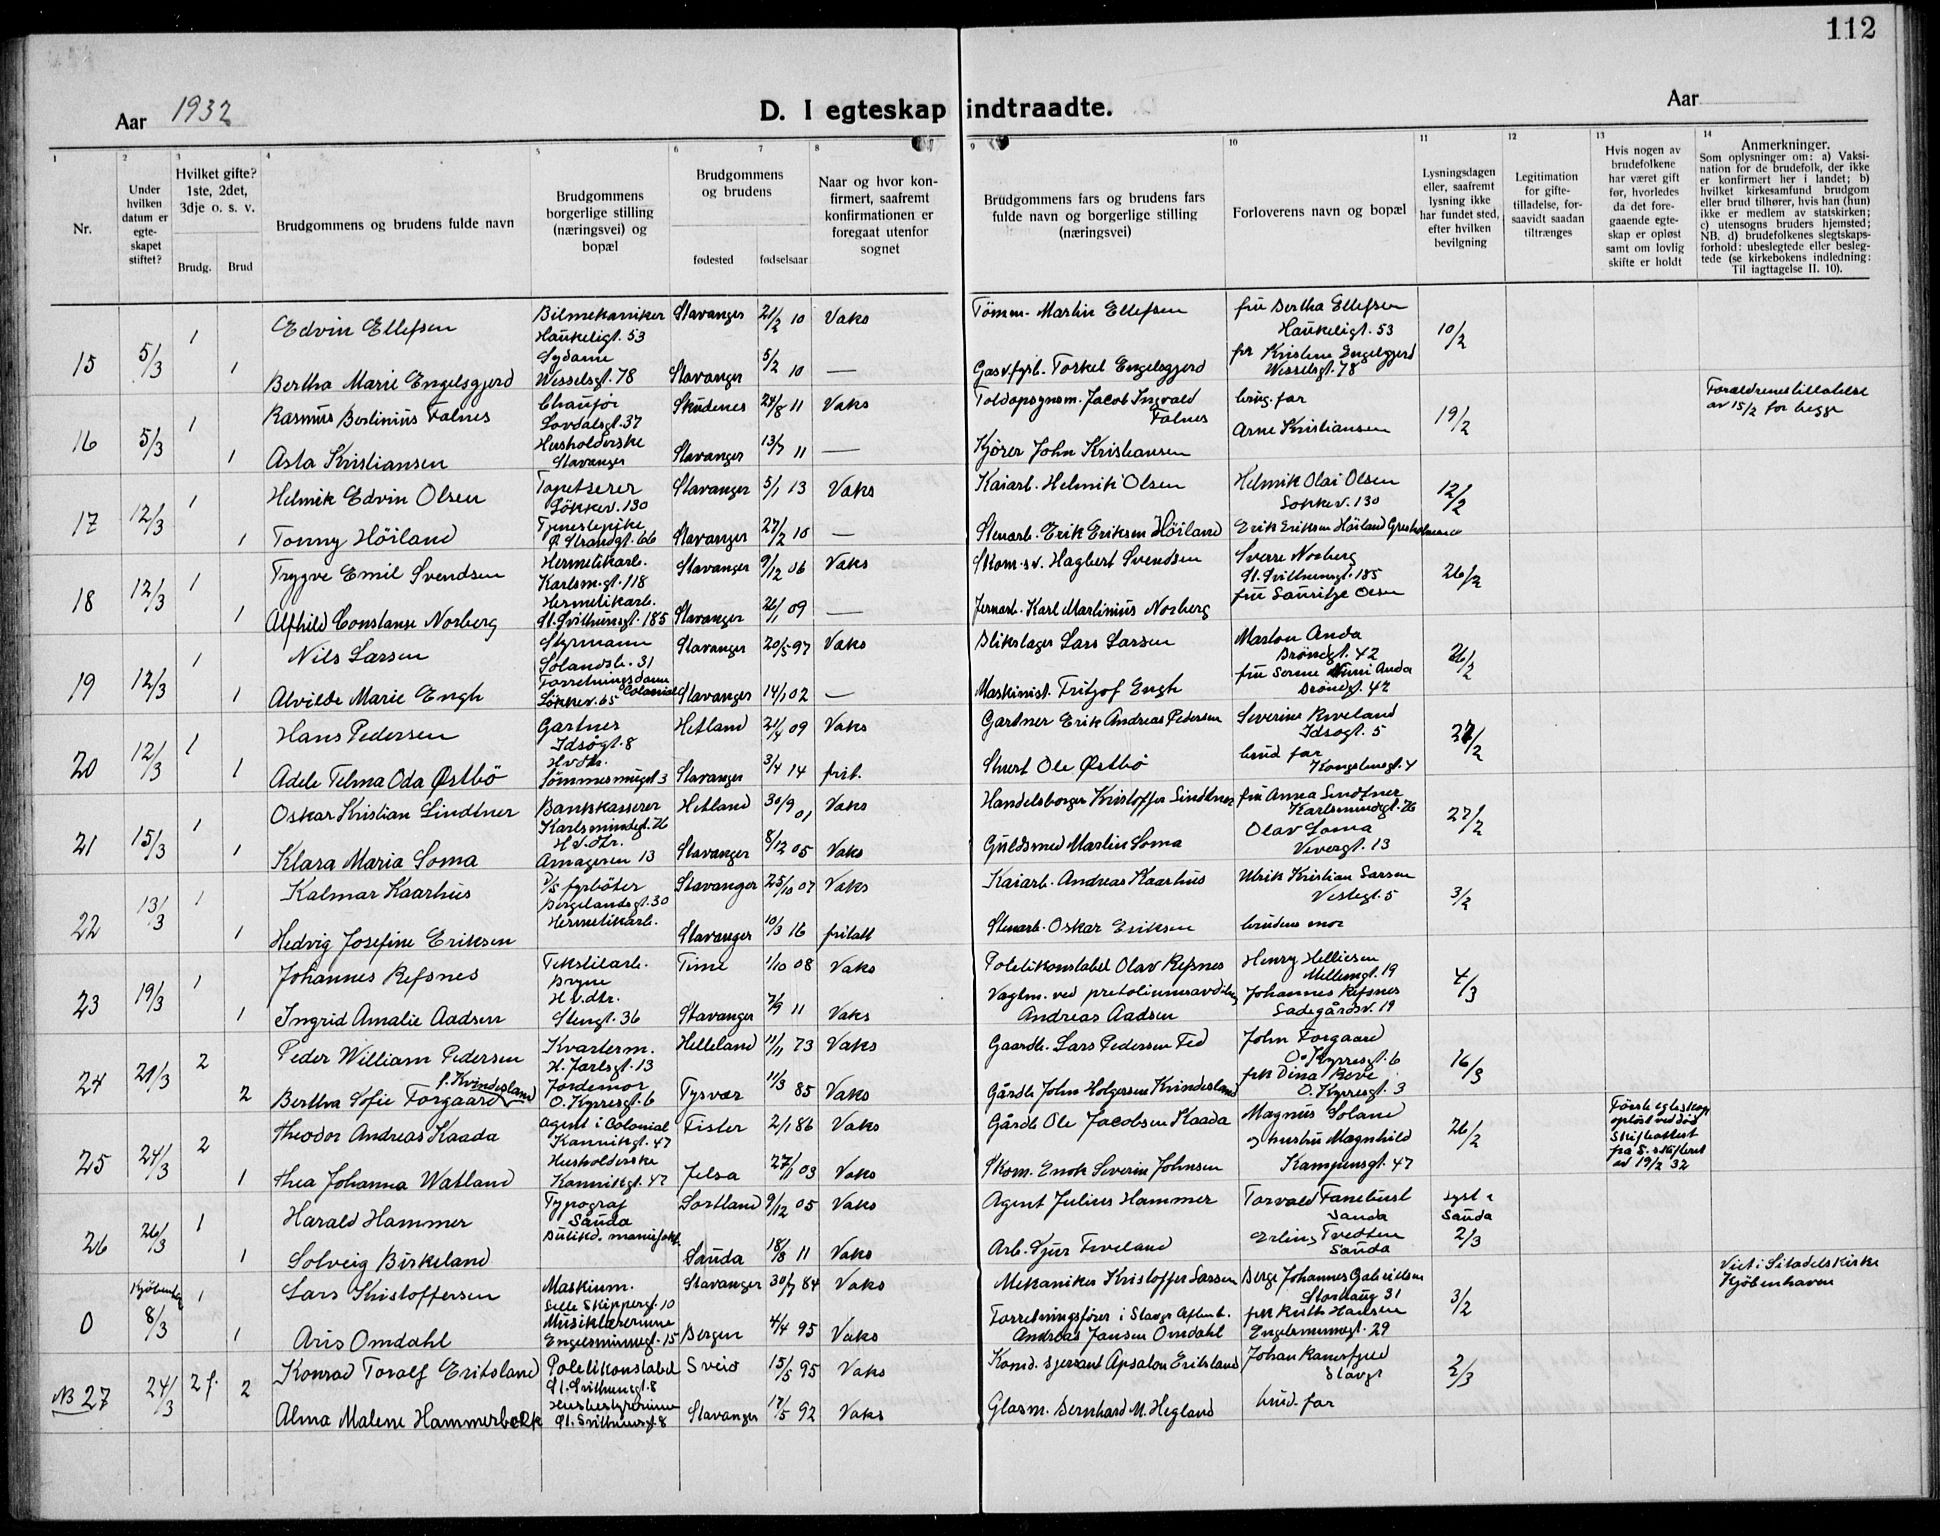 112
Aar 1932
D. I egteskap indtraadte.
Aar
1 2 3 4 5 6 7 8 9 10 11 12 13 14
Nr.
Under hvilken datum er egte-skapet stiftet?
Hvilket gifte? 1ste, 2det, 3dje o. s. v.
Brudg. Brud
Brudgommens og brudens fulde navn
Brudgommens borgerlige stilling (næringsvei) og bopæl
Brudgommens og brudens
fødested fødselsaar
Naar og hvor kon-firmert, saafremt konfirmationen er foregaat utenfor sognet
Brudgommens fars og brudens fars fulde navn og borgerlige stilling (næringsvei)
Forloverens navn og bopæl
Lysningsdagen eller, saafremt lysning ikke har fundet sted, efter hvilken bevilgning
Legitimation for gifte-tilladelse, for-saavidt saadan tiltrænges
Hvis nogen av brudefolkene har været gift før, hvorledes da det fore-gaaende egte-skap er opløst samt om lovlig skifte er holdt
Anmerkninger.
Som oplysninger om: a) Vaksi-nation for de brudefolk, der ikke er konfirmert her i landet; b) hvilket kirkesamfund brudgom eller brud tilhører, hvis han (hun) ikke er medlem av statskirken; c) utensogns bruders hjemsted; NB. d) brudefolkenes slegtskaps-forhold: ubeslegtede eller besleg-tede (se kirkebokens indledning: Til iagttagelse II. 10).
15 5/3 1 Edvin Ellefsen Bilmekaniker Haukeligt. 53 Stavanger 21/2 10 Vaks Tømm. Martin Ellefsen fru Bertha Ellefsen Haukeligt. 53 10/2
1 Bertha Marie Engelsgjerd Sydame Wesselsgt. 78 Stavanger 5/2 10 — Gasv.fyrb. Torkel Engelsgjerd frk Kristine Engelsgjerd Wesselsgt. 78
16 5/3 1 Rasmus Berlinius Falnes Chaufør Lovdalsgt. 37 Skudenes 24/8 11 Vaks Toldopsynsm. Jacob Ingvald Falnes brug. far 19/2 Forældrenes tillatelse av 15/2 for begge
1 Asta Kristiansen Husholderske Stavanger Stavanger 13/7 11 — Kjører John Kristiansen Arne Kristiansen
17 12/3 1 Helmik Edvin Olsen Tapetserer Løkkev. 130 Stavanger 5/1 13 Vaks Kaiarb. Helmik Olsen Helmik Olai Olsen Løkkev. 130 12/2
1 Tonny Høiland Tjenestepike Ø. Strandgt. 66 Stavanger 27/2 10 — Stenarb. Erik Eriksen Høiland Erik Eriksen Høiland
18 12/3 1 Trygve Emil Svendsen Hermetikarb. Karlsm.gt. 118 Stavanger 9/12 06 Vaks Skom.sv. Hagbert Svendsen Sverre Norberg St. Svithunsgt. 185 26/2
1 Alfhild Constanse Norberg Hermetikarb. St. Svithunsgt. 185 Stavanger 26/1 09 — Jernarb. Karl Martinius Norberg fru Lauritze Olsen
19 12/3 1 Nils Larsen Styrmann Solandsb. 31 Stavanger 20/5 97 Vaks Blikslager Lars Larsen Marton Anda Brøndgt. 42 26/2
1 Alvilde Marie Engh Forretningsdame Colonial Løkkev. 65 Stavanger 14/1 02 — Maskinist Fritjof Engh fru Serine Anda Brøndgt. 42
20 12/3 1 Hans Pedersen Gartner Idsøgt. 8 Hetland 21/4 09 Vaks Gartner Erik Andreas Pedersen Severine Riveland Idsøgt. 5 27/2
1 Adele Telma Oda Østbø Hvdtr. Tømmersmuget 3 Stavanger 3/4 14 frit. Stuert Ole Østbø brud far Kongstensgt. 4
21 15/3 1 Oskar Kristian Lindtner Bankkasserer Karlsmindegt. 76 Hetland 30/9 01 Vaks Handelsborger Kristoffer Lindtner fru Anna Lindtner Karlsmindegt. 76 27/2
1 Klara Maria Soma H.v.dtr. Amagerен 13 Stavanger 8/12 05 Vaks Guldsmed Martin Soma Olav Soma Vevergt. 13
22 13/3 1 Kalmar Kaarhus D/S fyrbøter Bergelandsgt. 30 Stavanger 25/10 07 Vaks Kaiarb. Andreas Kaarhus Ulrik Kristian Larsen Vestegt. 5 3/2
1 Hedvig Josefine Eriksen Hermetikarb. Stavanger 10/3 16 fritatt Stenarb. Oskar Eriksen brudens mor
23 19/3 1 Johannes Refsnes Tekstilarb. Bryne Time 1/10 08 Vaks Politikonstabel Olav Refsnes Henry Helliesen Mellemgt. 19 4/3
1 Ingrid Amalie Aadsen H.v.dtr. Stengt. 36 Stavanger 7/9 11 Vaks Vagtm. ved petroliumsavdeling Andreas Aadsen Johannes Refsnes Ladegårdsv. 19
24 21/3 2 Peder William Pedersen Kvarterm. H. Jarlsgt. 13 Helleland 11/11 73 Vaks Gaardb. Lars Pedersen Fed John Torgaard O. Kyrresgt. 6 16/3
2 Bertha Sofie Torgaard f. Kvindesland Jordemor O. Kyrresgt. 6 Tysvær 11/3 85 Vaks Gårdb. John Holgersen Kvindesland frk Dina Reve O. Kyrresgt. 3
25 24/3 2 Theodor Andreas Kaada agent i Colonial Kannikgt. 47 Fister 2/1 86 Vaks Gårdb Ole Jacobsen Kaada Magnus Soland og hustru Magnhild Kampensgt. 47 26/2 Første egteskap opløst ved død Skifteattest fra S. skifteret av 19/2 32
1 Thea Johanna Watland Husholderske Kannikgt. 47 Jelsa 27/11 03 Vaks Skom. Enok Severin Johnsen
26 26/3 1 Harald Hammer Typograf Sauda Sortland 9/12 05 Vaks Agent Julius Hammer Torvald Fanebust Sauda Lyst i Sauda 2/3
1 Solveig Birkeland Butikd. manufakt. Sauda 18/8 11 Vaks Arb. Sjur Tveland Erling Tvedten Sauda
0 Kjøbenhavn 8/3 1 Lars Kristoffersen Maskinm. Lille Skippergt. 10 Stavanger 30/7 84 Vaks Mekaniker Kristoffer Larsen Berge Johannes Gabrielsen Storhaug 31 3/2 Viet i Sitadelskirke Kjøbenhavn
1 Aris Omdahl Musiklærerinne Engelsminnegt. 15 Bergen 4/4 95 Vaks Forretningsfører i Stavgr Aftenb. Andreas Jansen Omdahl frk Ruth Hansen Engelsminnegt. 29
NB 27 24/3 2 f. Konrad Toralf Eritsland Politikonstabel St. Svithunsgt. 8 Sveio 15/5 95 Vaks Kom. sjersant Apsalon Eritsland Johan Stavgr 2/3
2 Alma Malene Hammerbekk Husbestyrerinne St. Svithunsgt. 8 Stavanger 17/5 92 Vaks Glasm. Bernhard M. Hegland brud. far